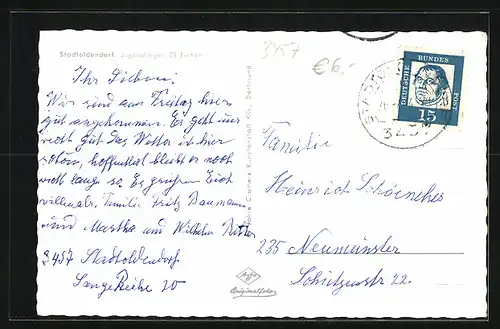 Stadtoldendorf. Jugendlager 25 Eichen
3457
€6,-
Ihr Lieben!
Wir sind am Freitag hier
gut angekommen. Es geht uns
recht gut das Wetter ist hier
schön, hoffentlich bleibt es noch
recht lange so. Es grüßen Euch
vielmals, Familie Fritz Baumann
und Martha und Wilhelm Ritter
3457 Stadtoldendorf
Lange Reihe 20
Cramers Kunstanstalt KG., Dortmund
Agfa
Originalfoto
DEUTSCHE BUNDES POST
15
Familie
Heinrich
235 Neumünster
Schützenstr 22.